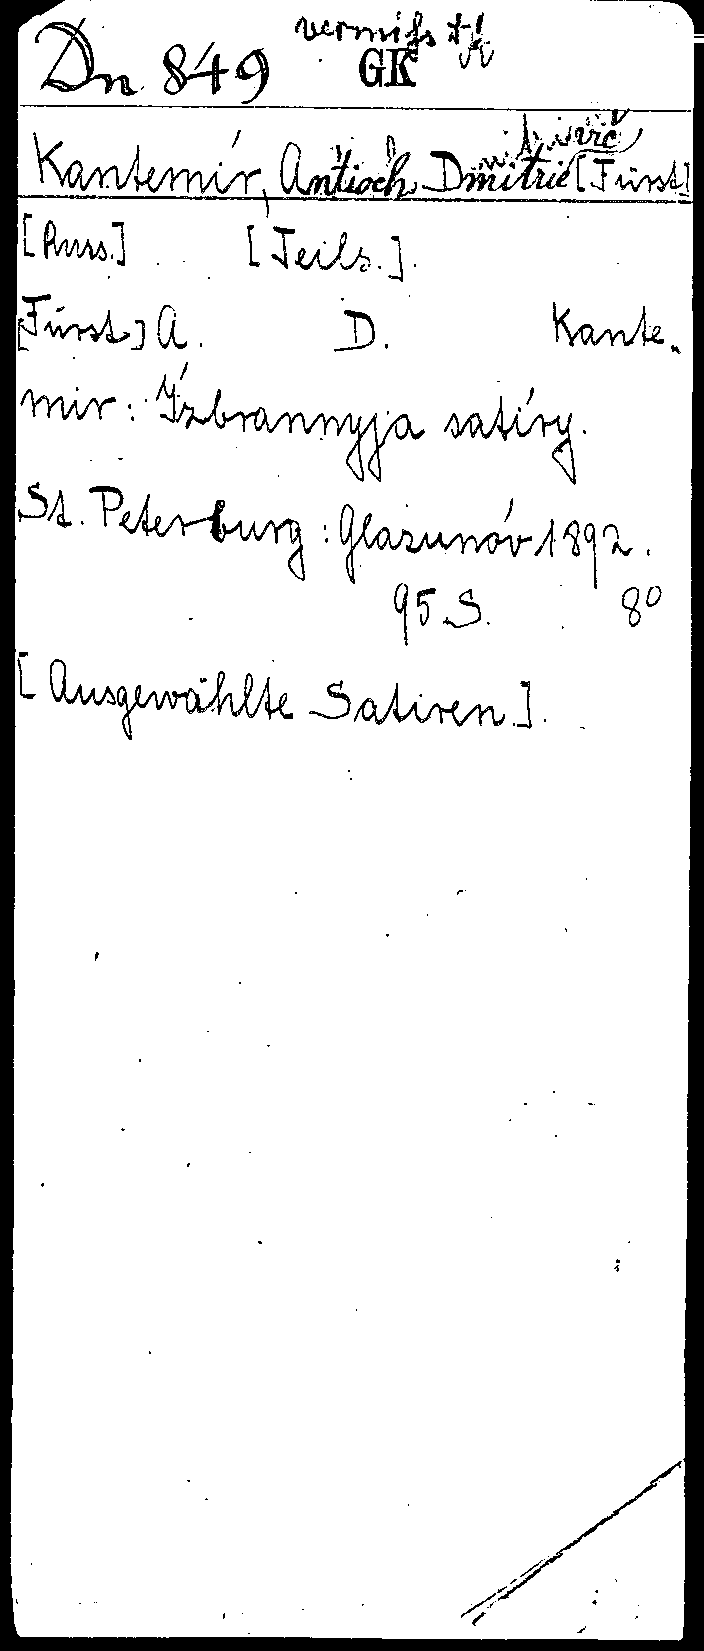 vermißt
Dn 849 GK
Kantemír, Antioch Dmitrievič [Fürst]
[Russ.] [Teils.].
[Fürst] A. D. Kante-
mir: Ízbrannyja satíry.
St. Peterburg: Glazunóv 1892.
95 S. 8°
[Ausgewählte Satiren].